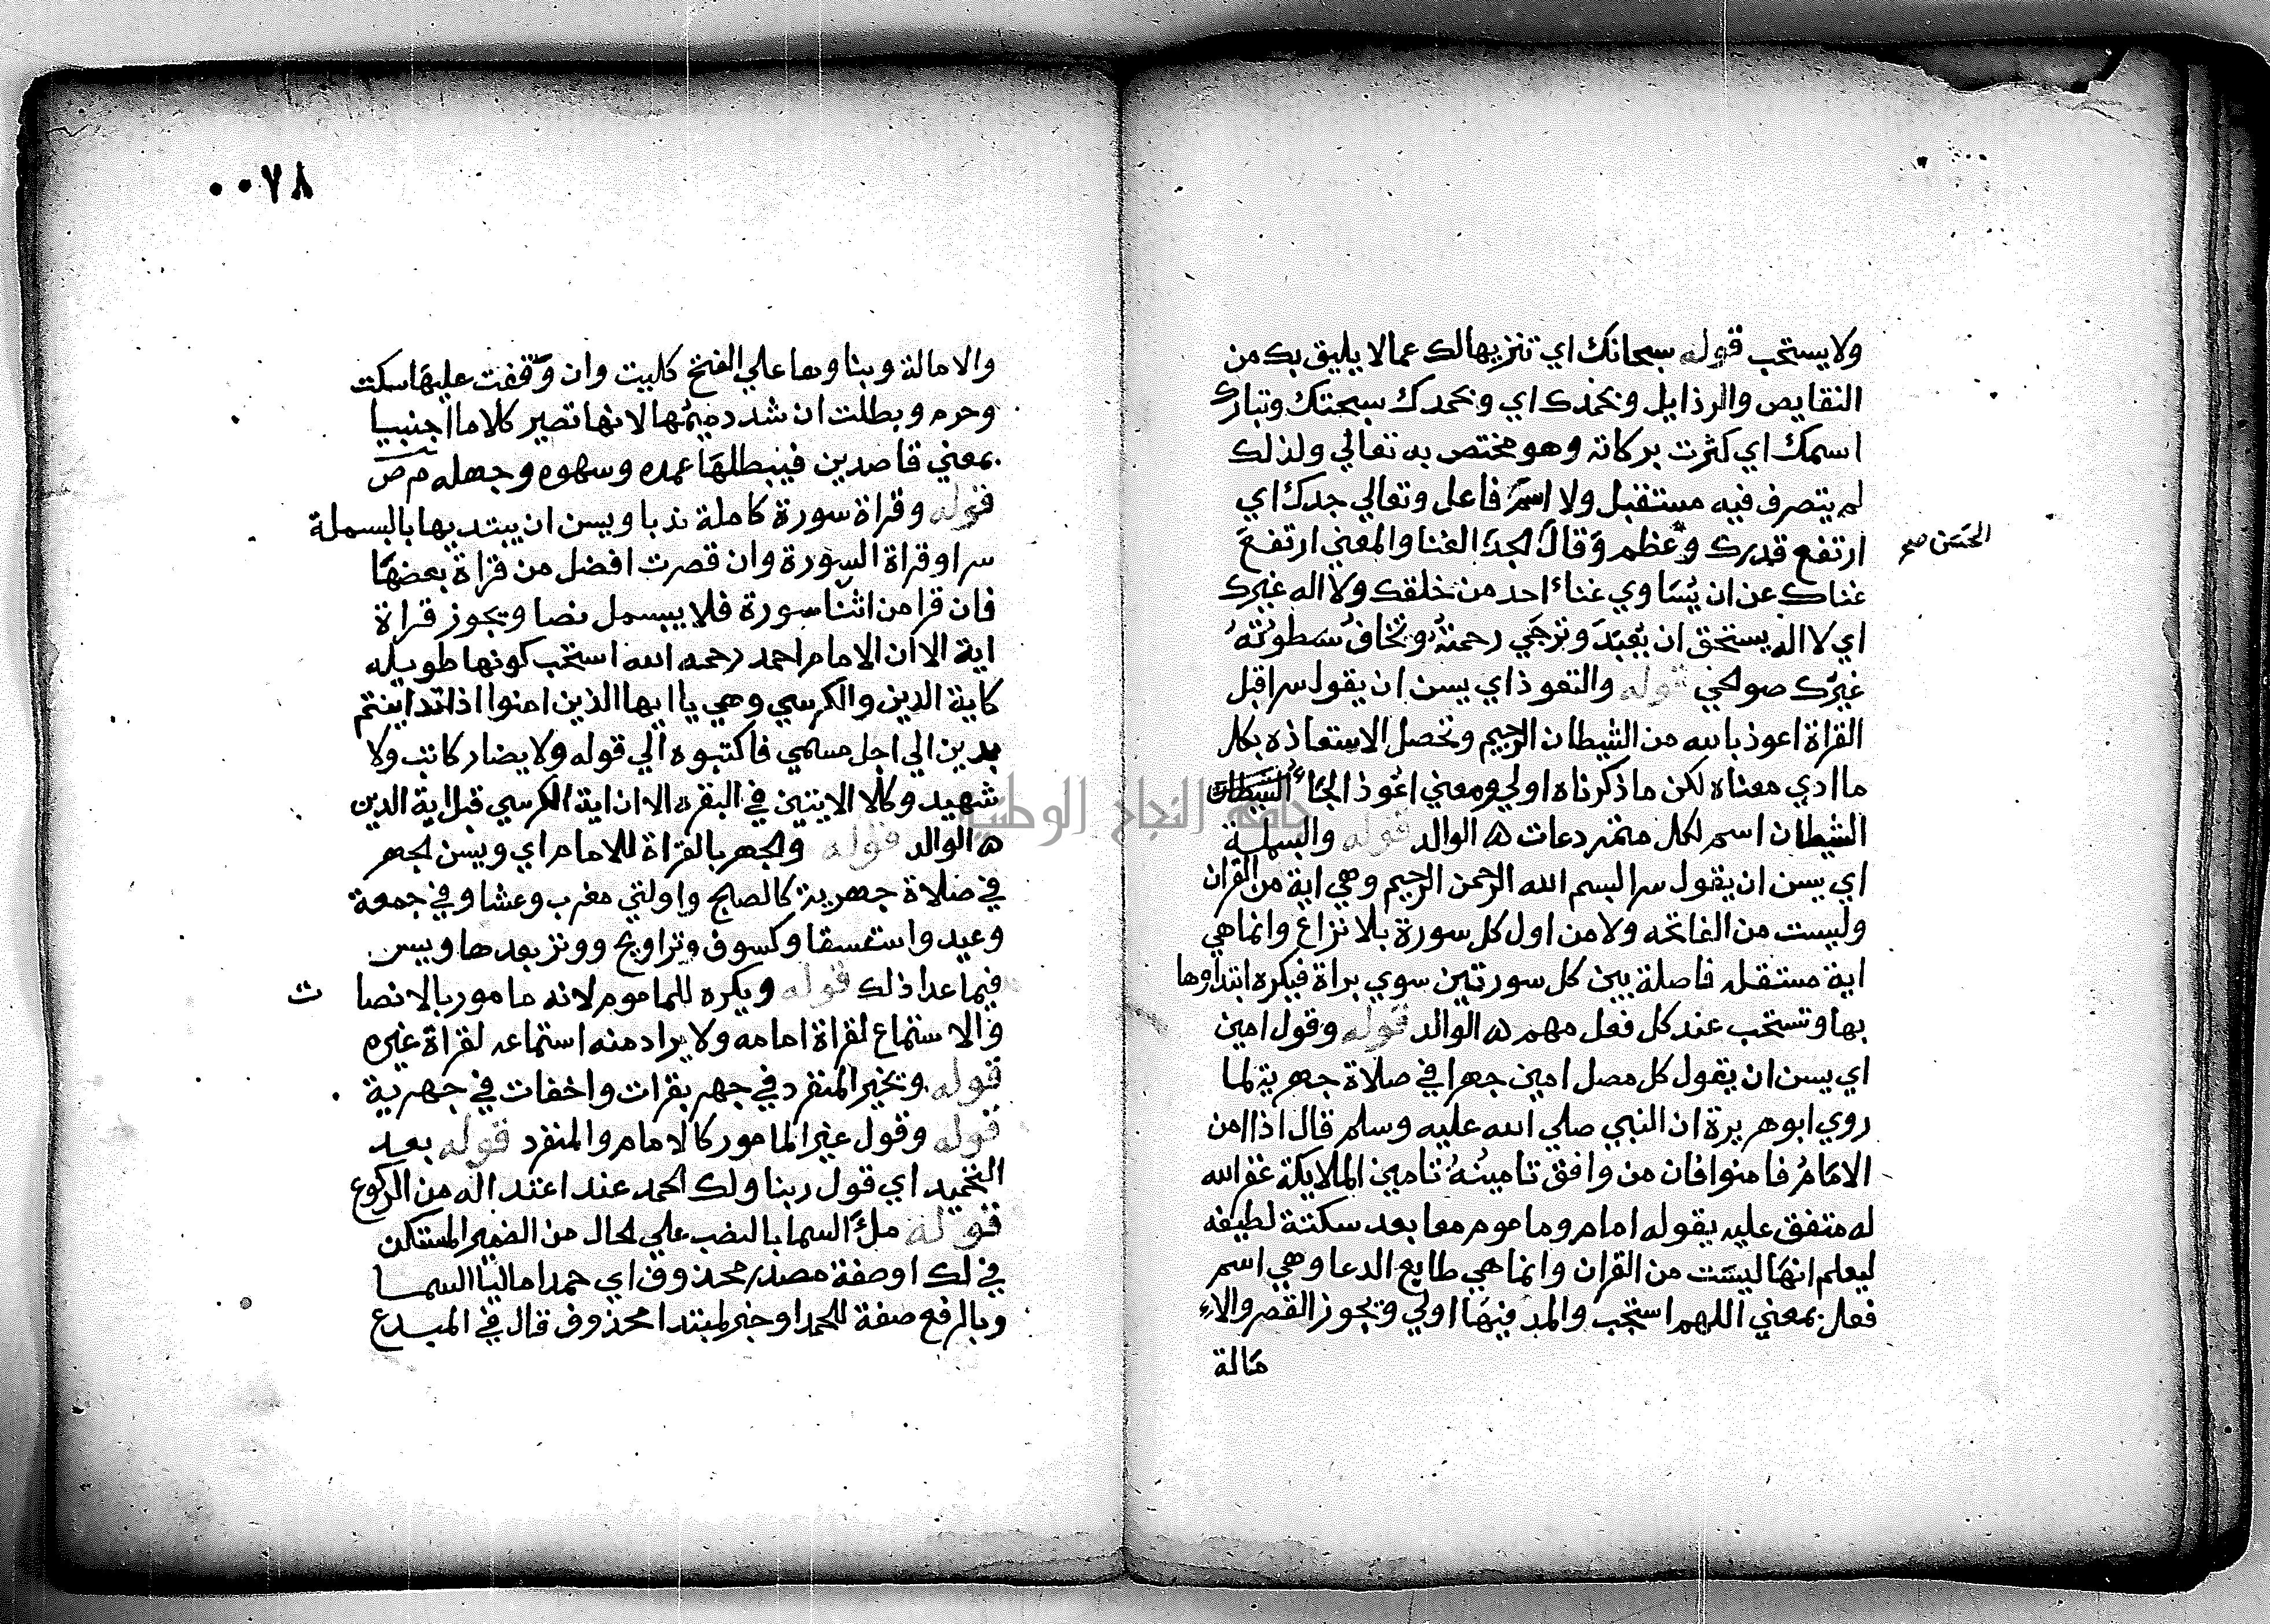 ولا يستحب قوله سبحانك اي تنزيها لك عما لا يليق بك من
النقايص والرذايل وبحمدك اي وبحمدك سبحتك وتبارك
اسمك اي كثرت بركاته وهو مختص به تعالي ولذلك
لم يتصرف فيه مستقبل ولا اسم فاعل وتعالي جدك اي
ارتفع قدرك وعظم وقال الجد الغنا والمعني ارتفع
الحسن صح
غناك عن ان يساوي غناء احد من خلقك ولا اله غيرك
اي لا اله يستحق ان يعبد وترجي رحمته وتخاف سطوته
غيرك صوالحي قوله والتعوذ اي يسن ان يقول سرا قبل
القراة اعوذ بالله من الشيطان الرجيم وتحصل الاستعاذه بكل
ما ادي معناه لكن ما ذكرناه اولي ومعني اعوذ الجاء الشيطان
الشيطان اسم لكل متمرد عات ه الوالد قوله والبسملة
اي يسن ان يقول سرا بسم الله الرحمن الرحيم وهي اية من القران
وليست من الفاتحه ولا من اول كل سورة بلا نزاع وانما هي
اية مستقله فاصلة بين كل سورتين سوي براة فيكره ابتداوها
بها وتستحب عند كل فعل مهم ه الوالد قوله وقول امين
اي يسن ان يقول كل مصل امين جهرا في صلاة جهرية لما
روي ابو هريرة ان النبي صلي الله عليه وسلم قال اذا امن
الامام فامنوا فان من وافق تامينه تامين الملايكة غفر الله
له متفق عليه يقوله امام وماموم معا بعد سكتة لطيفه
ليعلم انها ليست من القران وانما هي طابع الدعا وهي اسم
فعل بمعني اللهم استجب والمد فيها اولي ويجوز القصر والاء
مالة
٠٠٧٨
والامالة وبناوها علي الفتح كليت وان وقفت عليها سكت
وحرم وبطلت ان شدد ميمها لانها تصير كلاما اجنبيا
بمعني قاصدين فيبطلها عمده وسهوه وجهله م ص
قوله وقراة سورة كاملة ندبا ويسن ان يبتديها بالبسملة
سرا وقراة السورة وان قصرت افضل من قراة بعضها
فان قرا من اثنا سورة فلا يبسمل نصا ويجوز قراة
اية الا ان الامام احمد رحمه الله استحب كونها طويله
كاية الدين والكرسي وهي يا ايها الذين امنوا اذا تداينتم
بدين الي اجل مسمي فاكتبوه الي قوله ولا يضار كاتب ولا
شهيد وكلا الايتين في البقره الا ان اية الكرسي قبل اية الدين
ه الوالد قوله والجهر بالقراة للامام اي ويسن الجهر
في صلاة جهرية كالصبح واولتي مغرب وعشا وفي جمعة
وعيد واستسقا وكسوف وتراويح ووتر بعدها ويسر
فيما عدا ذلك قوله ويكره للماموم لانه مامور بالانصا ت
والاستماع لقراة امامه ولا يراد منه استماعه لقراة غيره
قوله ويخير المنفرد في جهر بقرات واخفات في جهرية
قوله وقول غير المامور كالامام والمنفرد قوله بعد
التحميد اي قول ربنا ولك الحمد عند اعتداله من الركوع
قوله ملء السما بالنصب علي الحال من الضمير المستكن
في لك او صفة مصدر محذوف اي حمدا ماليا السما
وبالرفع صفة للحمد او خبر لمبتدا محذوف قال في المبدع
جامعة النجاح الوطنية